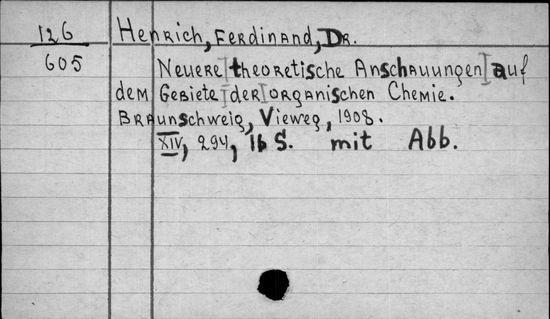 126 Henrich, Ferdinand, Dr.
605 Neuere [theoretische Anschauungen] auf
dem Gebiete [der] organischen Chemie.
Braunschweig, Vieweg, 1908.
XIV, 294, 16 S. mit Abb.